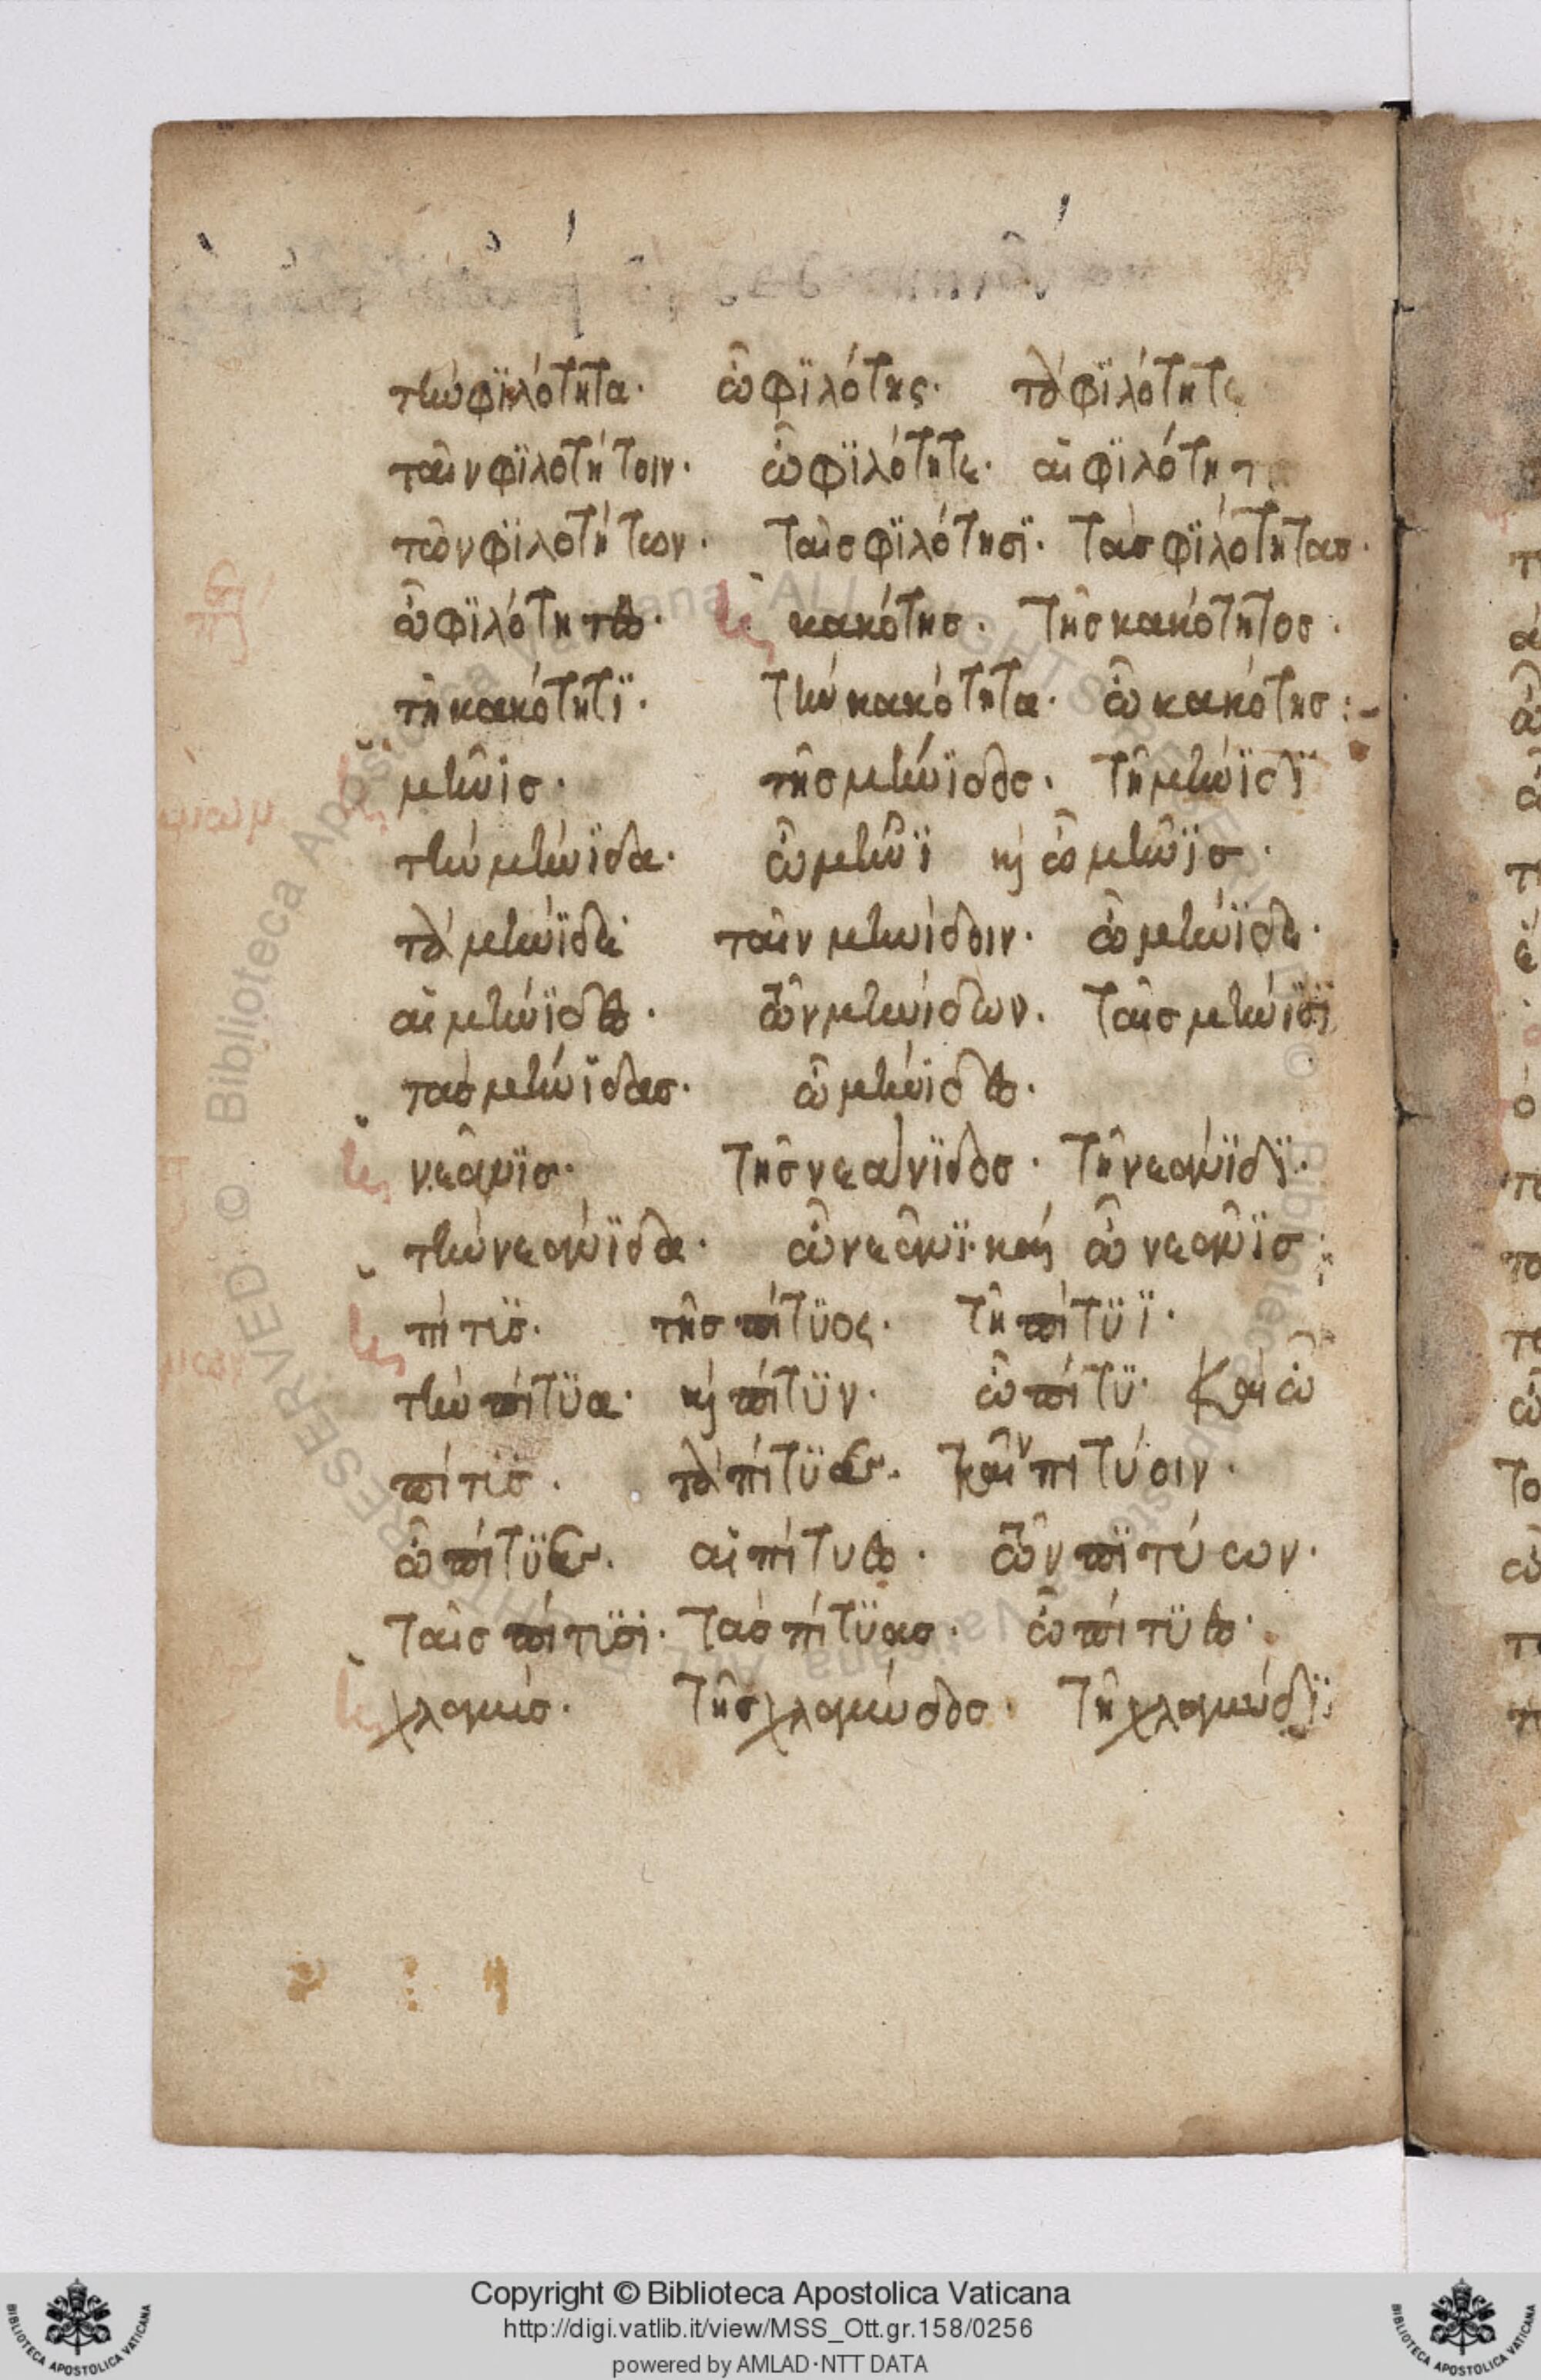 τὴν φϊλότητα· ὦ φϊλότης· τὰ φϊλότητε
ταῖν φϊλοτήτοιν· ὦ φϊλότητε· αἱ φϊλότητ
τῶν φϊλοτήτων· ταῖς φϊλότησϊ· τὰς φϊλότητας·
ὦ φϊλότητες· κακότης· τῆς κακότητος·
τῆ κακότητϊ· τὴν κακότητα· ὦ κακότης :-
μηνϊς· τῆς μήνϊδος· τῆ μήνϊδϊ
τὴν μήνϊδα· ὦ μῆνϊ κὶ ὦ μῆνϊς·
τὰ μήνϊδε ταῖν μηνίδοιν· ὦ μήνϊδε·
αἱ μήνϊδες· τῶν μηνίδων· ταῖς μήνϊσϊ
τὰς μήνϊδας· ὦ μήνιδες·
νεᾶνϊς· τῆς νεάνϊδος· τῆ νεάνϊδϊ·
τὴν νεάνϊδα· ὦ νεᾶνϊ· καὶ ὦ νεᾶνϊς :
πίτϋς· τῆς πίτϋος· τῆ πίτϋϊ·
τὴν πίτϋα· κὶ πίτϋν· ὦ πίτϋ· καὶ ὦ
πίτϋς· τὰ πίτϋε· ταῖν πιτύοιν·
ὦ πίτϋε· αἱ πίτυες· τῶν πϊτύων·
ταῖς πίτϋσι· τὰς πίτϋας· ὦ πίτϋες·
χλαμύς· τῆς χλαμύδος· τῆ χλαμύδϊ:
Copyright © Biblioteca Apostolica Vaticana
http://digi.vatlib.it/view/MSS_Ott.gr.158/0256
powered by AMLAD·NTT DATA